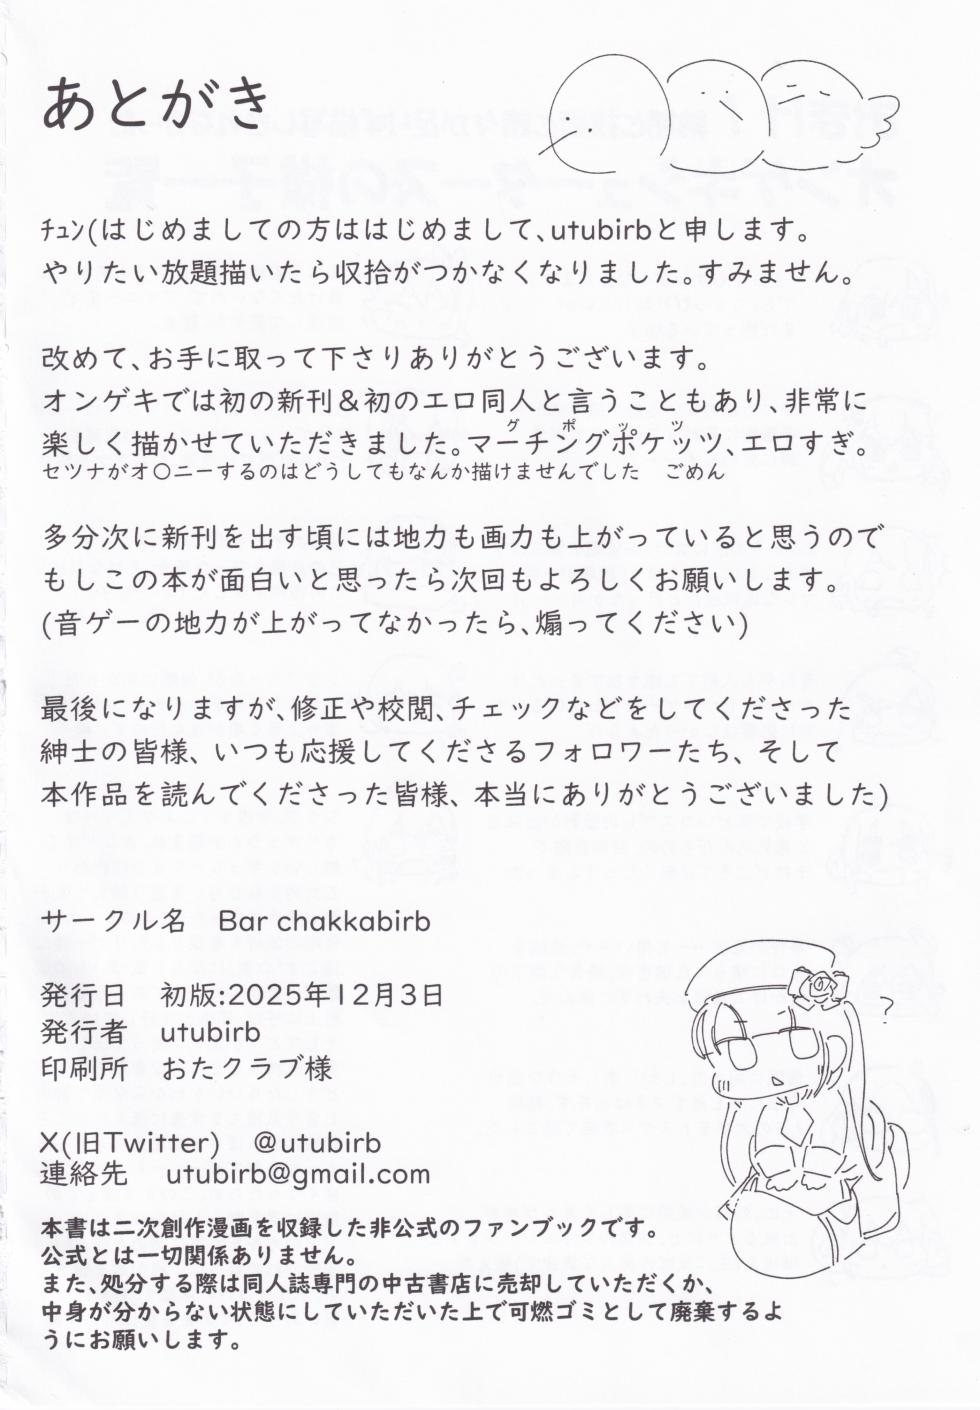 あとがき
ﾁｭﾝ(はじめましての方ははじめまして、utubirbと申します。
やりたい放題描いたら収拾がつかなくなりました。すみません。
改めて、お手に取って下さりありがとうございます。
オンゲキでは初の新刊＆初のエロ同人と言うこともあり、非常に
グポッッ
楽しく描かせていただきました。マーチングポケッツ、エロすぎ。
セツナがオ〇ニーするのはどうしてもなんか描けませんでした　ごめん
多分次に新刊を出す頃には地力も画力も上がっていると思うので
もしこの本が面白いと思ったら次回もよろしくお願いします。
(音ゲーの地力が上がってなかったら、煽ってください)
最後になりますが、修正や校閲、チェックなどをしてくださった
紳士の皆様、いつも応援してくださるフォロワーたち、そして
本作品を読んでくださった皆様、本当にありがとうございました)
サークル名　Bar chakkabirb
発行日　初版:2025年12月3日
発行者　utubirb
印刷所　おたクラブ様
?
X(旧Twitter)　@utubirb
連絡先　utubirb@gmail.com
本書は二次創作漫画を収録した非公式のファンブックです。
公式とは一切関係ありません。
また、処分する際は同人誌専門の中古書店に売却していただくか、
中身が分からない状態にしていただいた上で可燃ゴミとして廃棄するよ
うにお願いします。